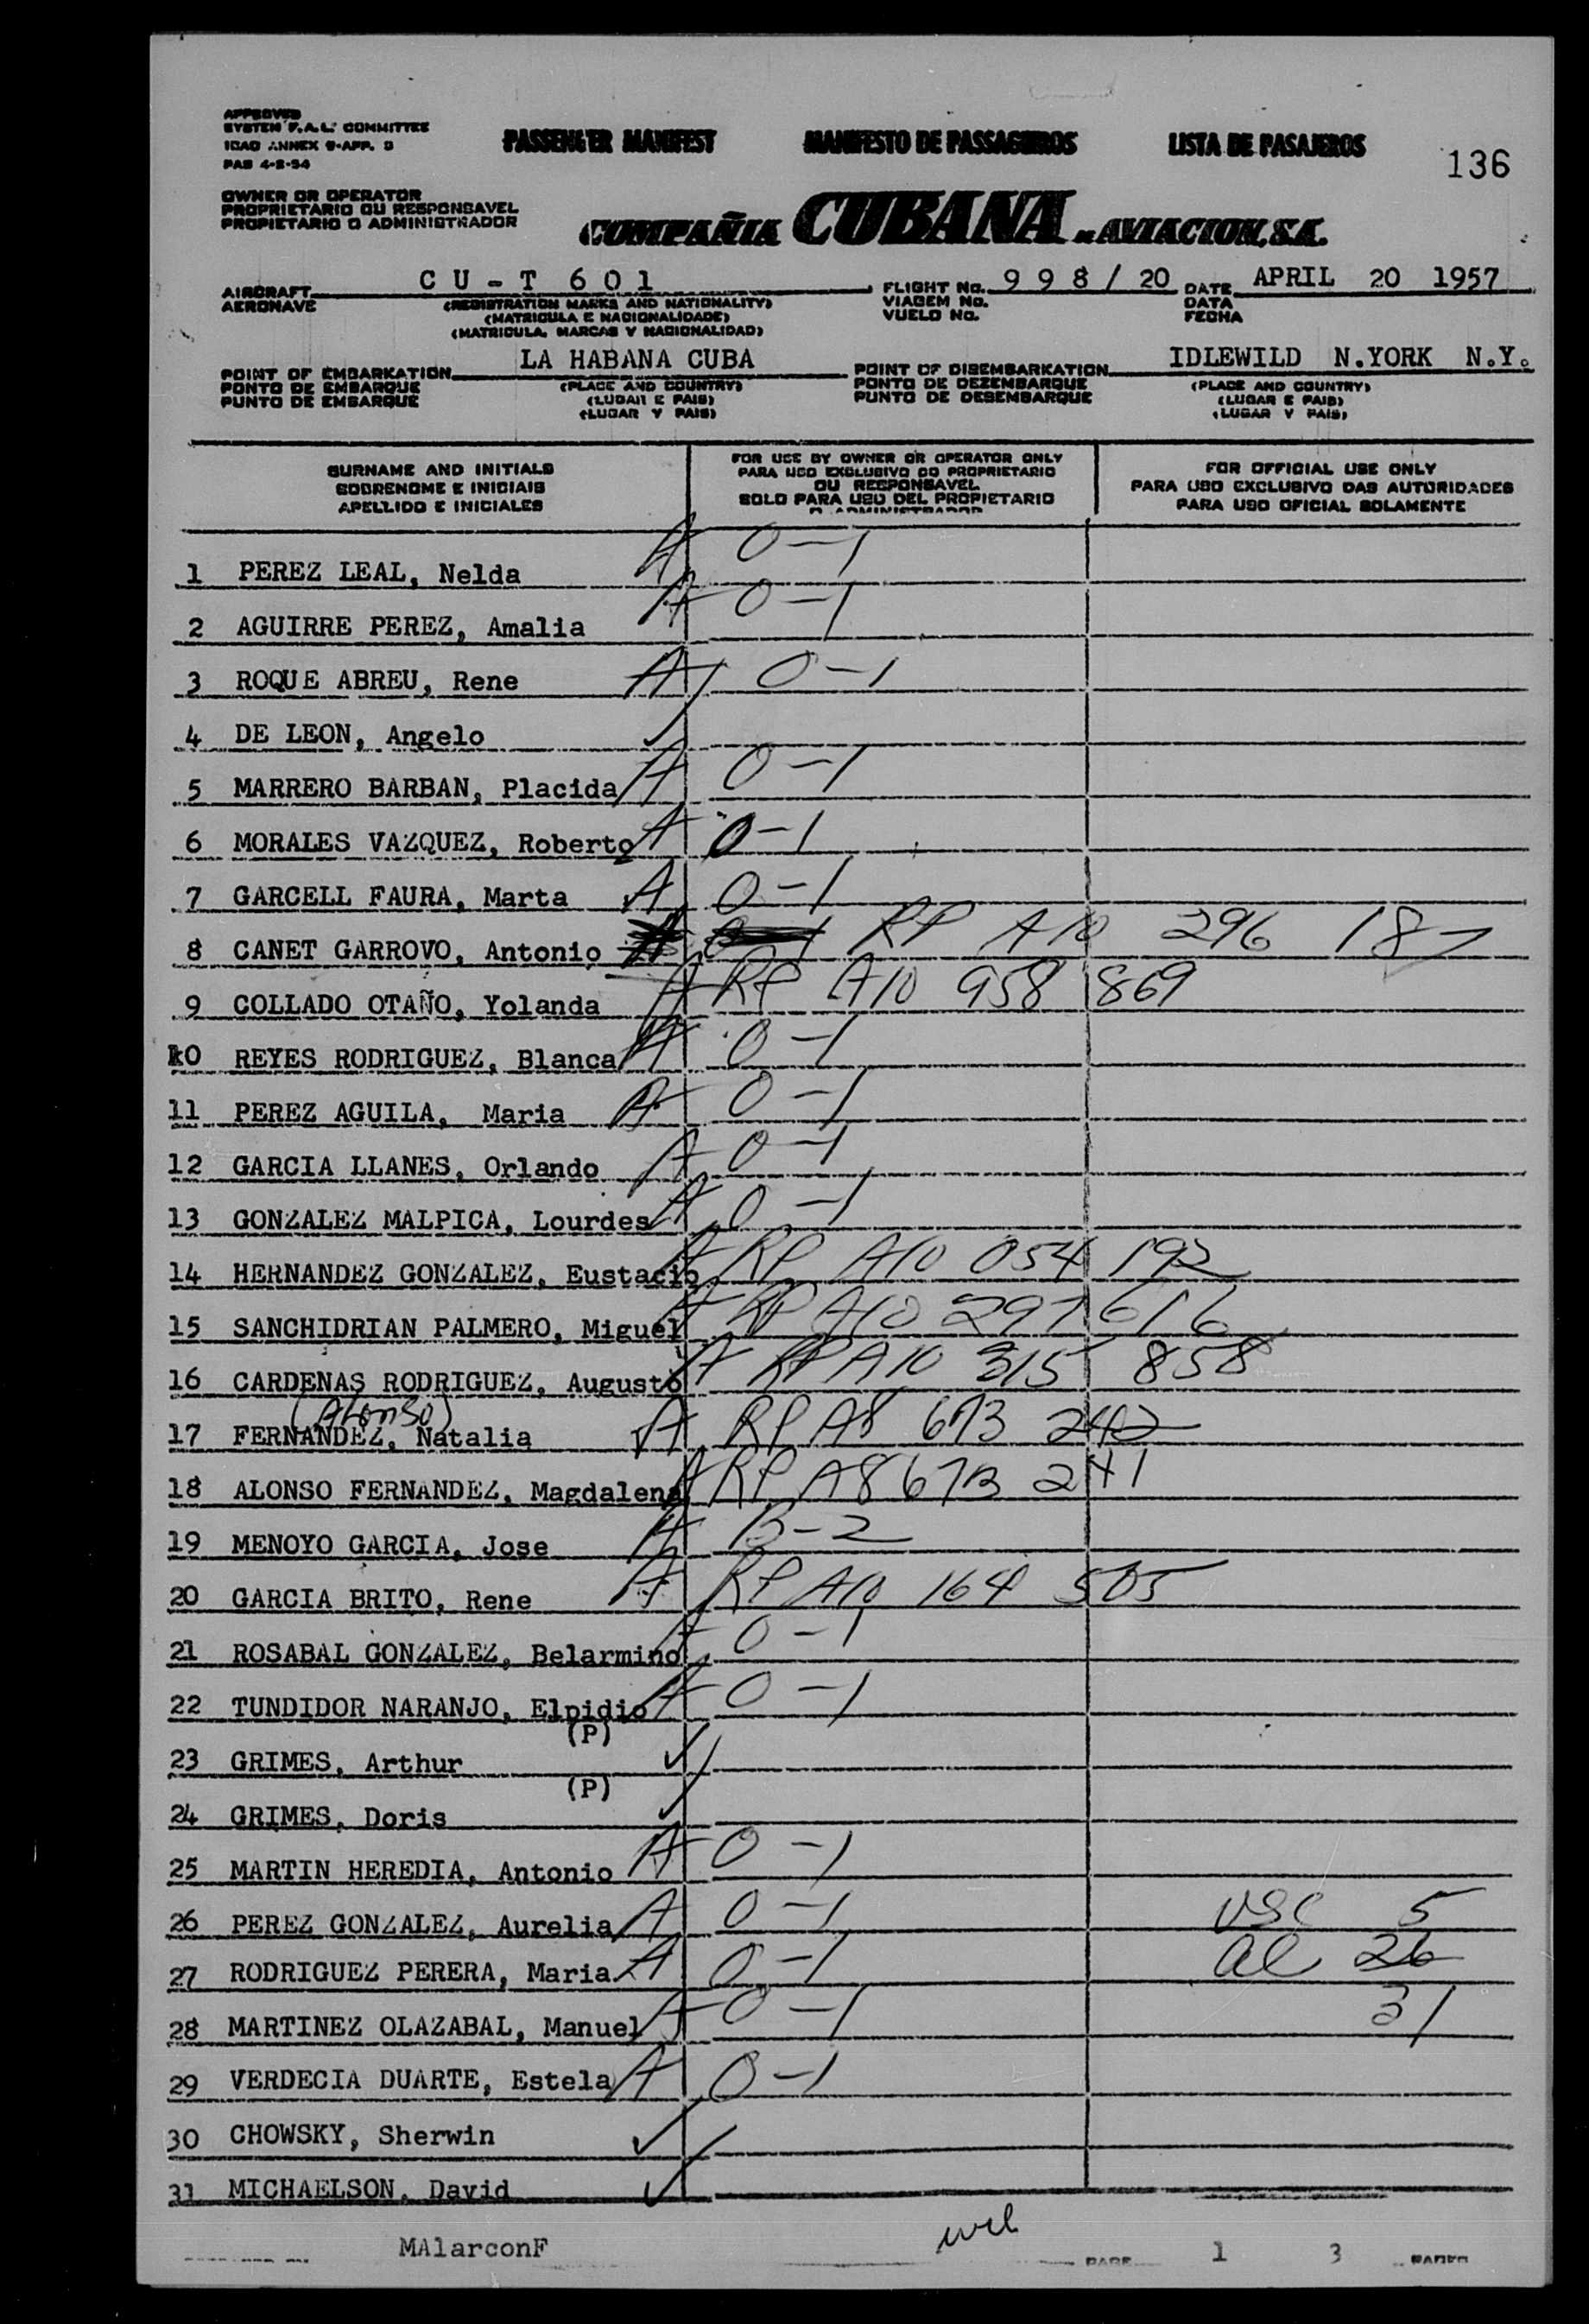 APPROVED
SYSTEM F.A.L. COMMITTEE
ICAO ANNEX 9-APP. 
PAB 4-2-54
PASSENGER MANIFEST MANIFESTO DE PASSAGEIROS LISTA DE PASAJEROS
136
OWNER OR OPERATOR
PROPRIETARIO OU RESPONSAVEL
PROPIETARIO O ADMINISTRADOR
COMPAÑIA CUBANA DE AVIACION, S.A.
AIRCRAFT CU-T 601 FLIGHT No. 998/20 DATE APRIL 20 1957
AERONAVE (REGISTRATION MARKS AND NATIONALITY) VIAGEM No. DATA
(MATRICULA E NACIONALIDADE) VUELO No. FECHA
(MATRICULA, MARCAS Y NACIONALIDAD)
POINT OF EMBARKATION LA HABANA CUBA POINT OF DISEMBARKATION IDLEWILD N.YORK N.Y.
PONTO DE EMBARQUE (PLACE AND COUNTRY) PONTO DE DEZEMBARQUE (PLACE AND COUNTRY)
PUNTO DE EMBARQUE (LUGAR E PAIS) PUNTO DE DESEMBARQUE (LUGAR E PAIS)
(LUGAR Y PAIS) (LUGAR Y PAIS)
SURNAME AND INITIALS
SOBRENOME E INICIAIS
APELLIDO E INICIALES
FOR USE BY OWNER OR OPERATOR ONLY
PARA USO EXCLUSIVO DO PROPRIETARIO
OU RESPONSAVEL
SOLO PARA USO DEL PROPIETARIO
O ADMINISTRADOR
FOR OFFICIAL USE ONLY
PARA USO EXCLUSIVO DAS AUTORIDADES
PARA USO OFICIAL SOLAMENTE
1 PEREZ LEAL, Nelda A 0-1
2 AGUIRRE PEREZ, Amalia A 0-1
3 ROQUE ABREU, Rene A 0-1
4 DE LEON, Angelo ✓
5 MARRERO BARBAN, Placida A 0-1
6 MORALES VAZQUEZ, Roberto A 0-1
7 GARCELL FAURA, Marta A 0-1
8 CANET GARROVO, Antonio RP A10 296 187
9 COLLADO OTAÑO, Yolanda A RP A10 958 869
10 REYES RODRIGUEZ, Blanca A 0-1
11 PEREZ AGUILA, Maria A 0-1
12 GARCIA LLANES, Orlando A 0-1
13 GONZALEZ MALPICA, Lourdes A 0-1
14 HERNANDEZ GONZALEZ, Eustacio A RP A10 054 192
15 SANCHIDRIAN PALMERO, Miguel A RP A10 297 616
16 CARDENAS RODRIGUEZ, Augusto A RP A10 315 858
(Alonso)
17 FERNANDEZ, Natalia A RP A8 673 242
18 ALONSO FERNANDEZ, Magdalena A RP A8 673 241
19 MENOYO GARCIA, Jose A B-2
20 GARCIA BRITO, Rene A RP A10 164 505
21 ROSABAL GONZALEZ, Belarmino A 0-1
22 TUNDIDOR NARANJO, Elpidio A 0-1
(P)
23 GRIMES, Arthur ✓
(P)
24 GRIMES, Doris ✓
25 MARTIN HEREDIA, Antonio A 0-1
26 PEREZ GONZALEZ, Aurelia A 0-1 USC 5
27 RODRIGUEZ PERERA, Maria A 0-1 al 26
28 MARTINEZ OLAZABAL, Manuel A 0-1 31
29 VERDECIA DUARTE, Estela A 0-1
30 CHOWSKY, Sherwin ✓
31 MICHAELSON, David ✓
MAlarconF PAGE 1 3 PAGES